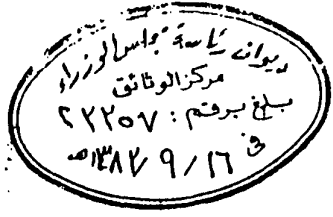 ديوان رئاسة مجلس الوزراء
مركز الوثائق
بلغ برقم : ٢٢٢٥٧
في ١٣٨٢/٩/١٦هـ